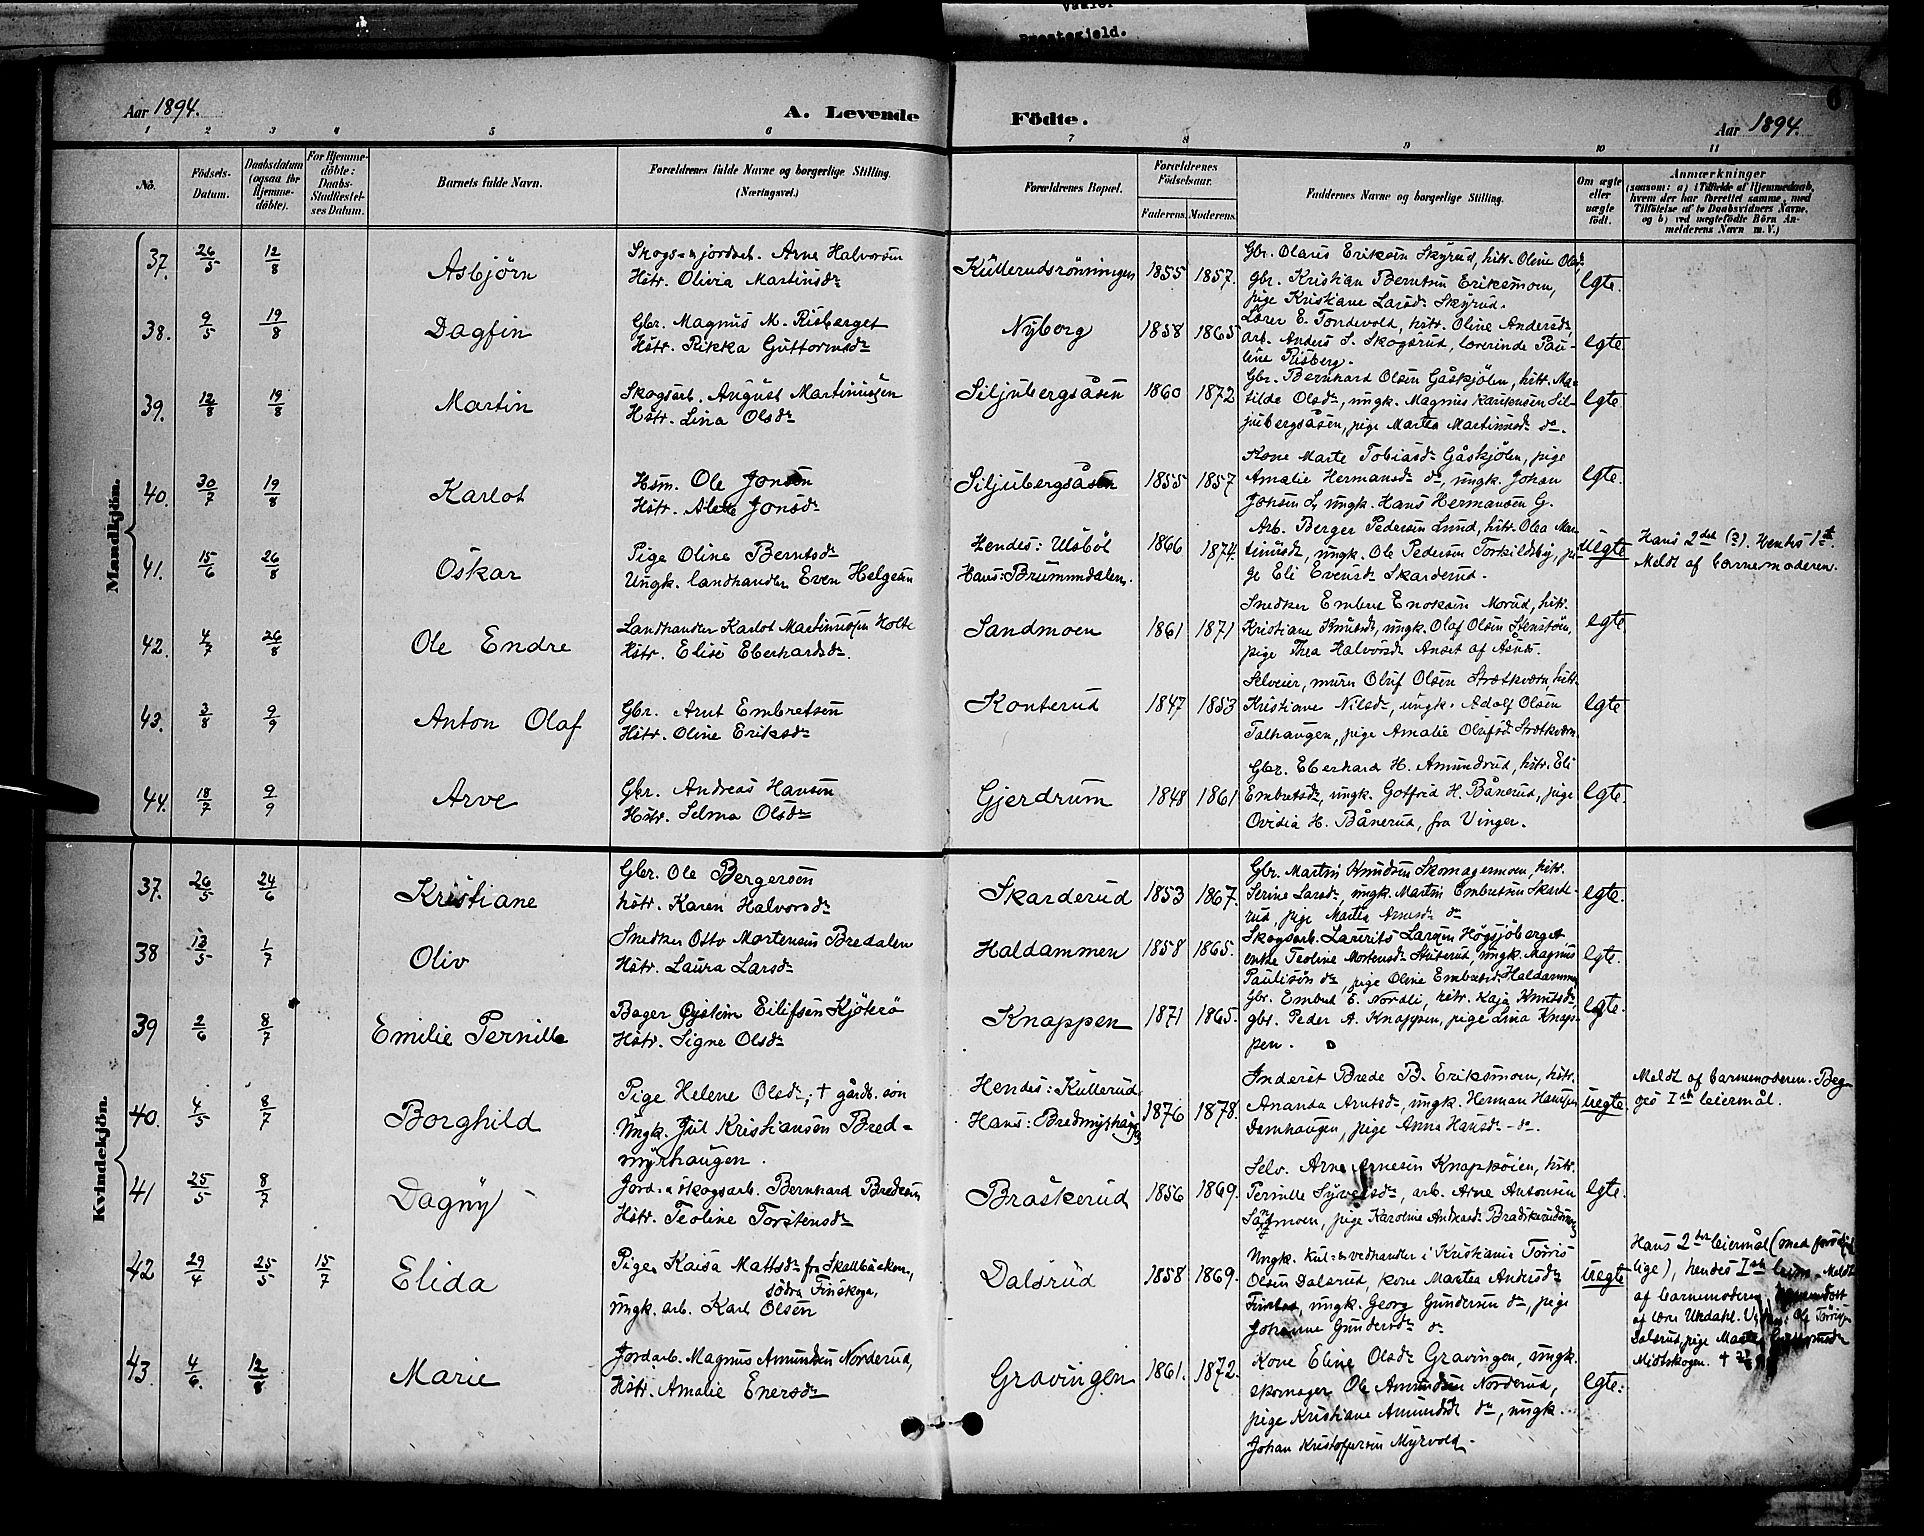 Vaaler
Prestegjeld.
Aar 1894.
A. Levende Födte.
Aar 1894.
6
1 2 3 4 5 6 7 8 9 10 11
No.
Födsels-Datum.
Daabsdatum (ogsaa for Hjemmedöbte).
For Hjemmedöbte: Daabs-Stadfæstelses Datum.
Barnets fulde Navn.
Forældrenes fulde Navne og borgerlige Stilling.
(Næringsvei.)
Forældrenes Bopæl.
Forældrenes Födselsaar.
Faderens. Moderens.
Faddernes Navne og borgerlige Stilling.
Om ægte eller uægte födt.
Anmærkninger
(saasom: a) i Tilfælde af Hjemmedaab,
hvem der har forrettet samme, med
Tilföielse af to Daabsvidners Navne,
og b) ved uægtefödte Börn An-
melderens Navn m. V.)
Mandkjön.
37. 26/5 12/8 Asbjörn
Skogs- & jordarb. Arne Halvorsen
Hstr. Olivia Martinsdr
Kullerudsrönningen 1855 1857.
Gbr. Olaus Eriksen Skyrud, hstr. Oline Olsd,
gbr. Kristian Berntsen Eriksmoen,
pige Kristiane Larsdr Skyrud.
egte.
38. 9/5 19/8 Dagfin
Gbr. Magnus M. Risberget
Hstr. Rikka Guttormsdr
Nyborg 1858 1865
Lærer E. Tondevold, hstr. Oline Andersdr,
arb. Anders S. Skogsrud, lærerinde Pau-
line Risberg.
egte
39. 12/8 19/8 Martin
Skogsarb. August Martinussen
Hstr. Lina Olsdr
Siljubergsåsen 1860 1872
Gbr. Bernhard Olsen Gåskjölen, hstr. Ma-
tilde Olsdr, ungk. Magnus Karlsensen Sil-
jubergsåsen, pige Martea Martinusdr do.
egte
40. 30/7 19/8 Karlot
Hsm. Ole Jonsen
Hstr. Alette Jonsdr
Siljubergsåsen 1855 1857
Kone Marte Tobiasdr Gåskjölen, pige
Amalie Hermansdr do, ungk. Johan
Johsen S., ungk. Hans Hermansen G.
egte.
41. 15/6 26/8 Oskar
Pige Oline Berntsdr
Ungk. landhandler Even Helgesen
Hendes: Ulsböl
Hans: Brumundalen.
1866 1874.
Arb. Berger Pedersen Lund, hstr. Olea Mar-
tinusdr, ungk. Ole Pedersen Torkildsby, pi-
ge Eli Evensdr Skarderud.
uegte
Hans 2det (?). Hendes 1ste.
Meldt af barnemoderen.
42. 4/7 26/8 Ole Endre
Landhandler Karlot Martinussen Holte
Hstr. Elise Eberhardsdr.
Sandmoen 1861 1871
Snedker Embret Enoksen Morud, hstr.
Kristiane Knudsdr, ungk. Olaf Olsen Stenstöen,
pige Thea Halvorsdr Anset af Åsnes.
egte.
43. 3/8 9/9 Anton Olaf
Gbr. Arnt Embretsen
Hstr. Oline Eriksdr
Konterud 1847 1853
Selveier, murer Oluf Olsen Strætkværn, hstr.
Kristiane Nilsdr, ungk. Adolf Olsen
Talhaugen, pige Amalie Olufsdr Strætkværn.
egte
44. 18/7 9/9 Arve
Gbr. Andreas Hansen
Hstr. Selma Olsdr
Gjerdrum 1848 1861
Gbr. Eberhard H. Amundrud, hstr. Eli
Embretsdr, ungk. Gotfrid H. Bånerud, pige
Ovidia H. Bånerud, fra Vinger.
egte.
Kvindekjön.
37. 26/5 24/6 Kristiane
Gbr. Ole Bergersen
hstr. Karen Halvorsdr
Skarderud 1853 1867.
Gbr. Martin Knudsen Skomagermoen, hstr.
Serine Larsdr, ungk. Martin Embretsen Skarde-
rud, pige Martea Arnesdr do
egte.
38 13/5 1/7 Oliv
Snedker Otto Mortensen Bredalen
Hstr. Laura Larsdr
Haldammen 1858 1865.
Skogsarb. Laurits Larsen Högsjöberget,
enke Teoline Mortensdr Stuterud, ungk. Magnus
Paulisön do, pige Oline Embretsdr Haldammen
egte.
39 2/6 8/7 Emilie Pernille
Bager Öistein Eilifsen Kjöterö
Hstr. Signe Olsdr
Knappen 1871 1865.
Gbr. Embret E. Nordli, hstr. Kaja Knutsdr
gbr. Peder A. Knappen, pige Lina Knap-
pen.
egte.
40. 4/5 8/7 Borghild
Pige Helene Olsdr; † gårdb. sön
Ungk. Jul Kristiansen Bred-
myrhaugen.
Hendes: Kullerud
Hans: Bredmyrhaugen
1876 1878.
Inderst Brede B. Eriksmoen, hstr.
Ananda Arntsdr, ungk. Herman Hansen
Damhaugen, pige Anna Hansdr - do.
uegte.
Meldt af barnemoderen. Beg-
ges 1ste leiermål.
41 25/5 8/7 Dagny
Jord- & skogsarb. Bernhard Bredesen
Hstr. Teoline Torstensdr
Braskerud 1856 1869.
Selv. Arne Arnesen Knapköien, hstr.
Pernille Syversdr, arb. Arne Antonsen
Sandmoen, pige Karoline Andreasdr
egte.
42 29/4 25/5 15/7 Elida
Pige Kaisa Mattsdr fra Skallbäcken,
södra Finskoga,
Ungk. arb. Karl Olsen
Dalsrud 1858 1869.
Ungk. kul- & vedhandler i Kristiania Törris
Olsen Dalsrud, kone Martea Andersdr
ungk. Georg Gundersen do, pige
Johanne Gundersdr do
uegte
Hans 2det leiermål (med forskjel-
lige), hendes 1ste leierm. Meldt
af barnemoderen.
af lærer Updahl. Ole Törrisen
Dalsrud, pige Martea
Midtskogen. †
43. 4/6. 12/8 Marie
Jordarb. Magnus Amundsen Norderud,
Hstr. Amalie Enersdr
Gravingen 1861. 1872.
Kone Eline Olsdr Gravingen, ungk.
skomager Ole Amundsen Norderud,
pige Kristiane Amundsdr do, ungk.
Johan Kristoffersen Myrvold.
egte.